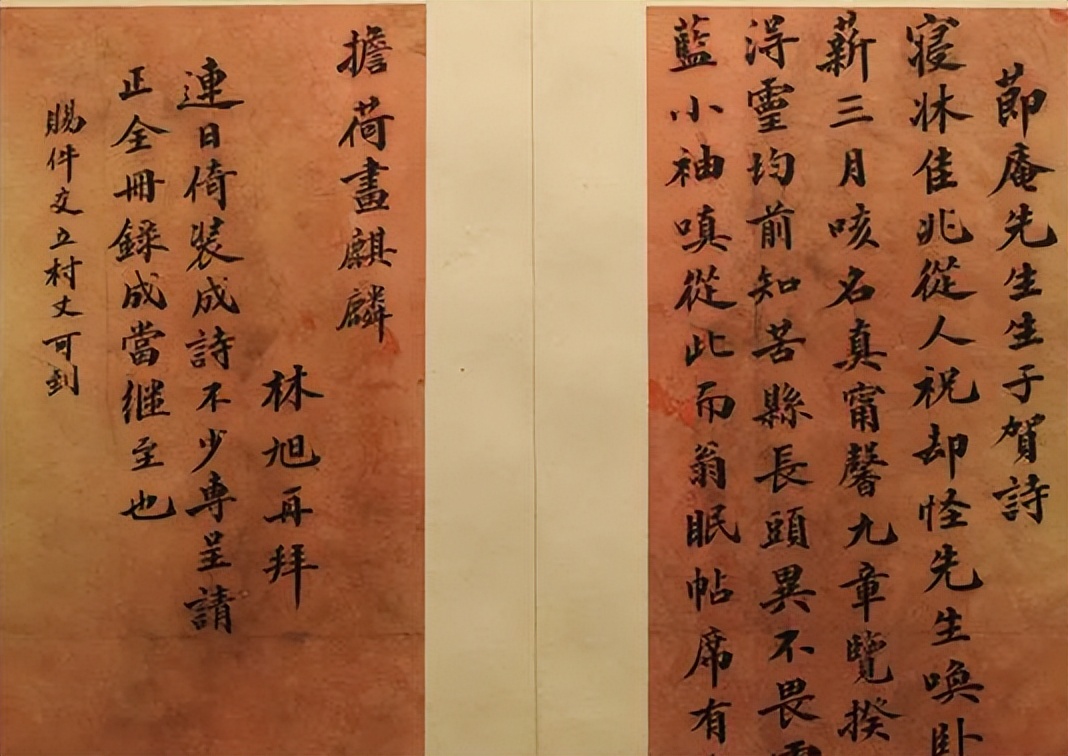 節庵先生生子賀詩
寢牀佳兆從人祝却怪先生喚卧
薪三月咳名真甯馨九章覽揆
得靈均前知苦縣長頭異不畏
藍小袖嗔從此而翁眠帖席有
擔荷畫麒麟
林旭再拜
連日倚裝成詩不少専呈請
正全冊錄成當继至也
賜件交立村丈可到